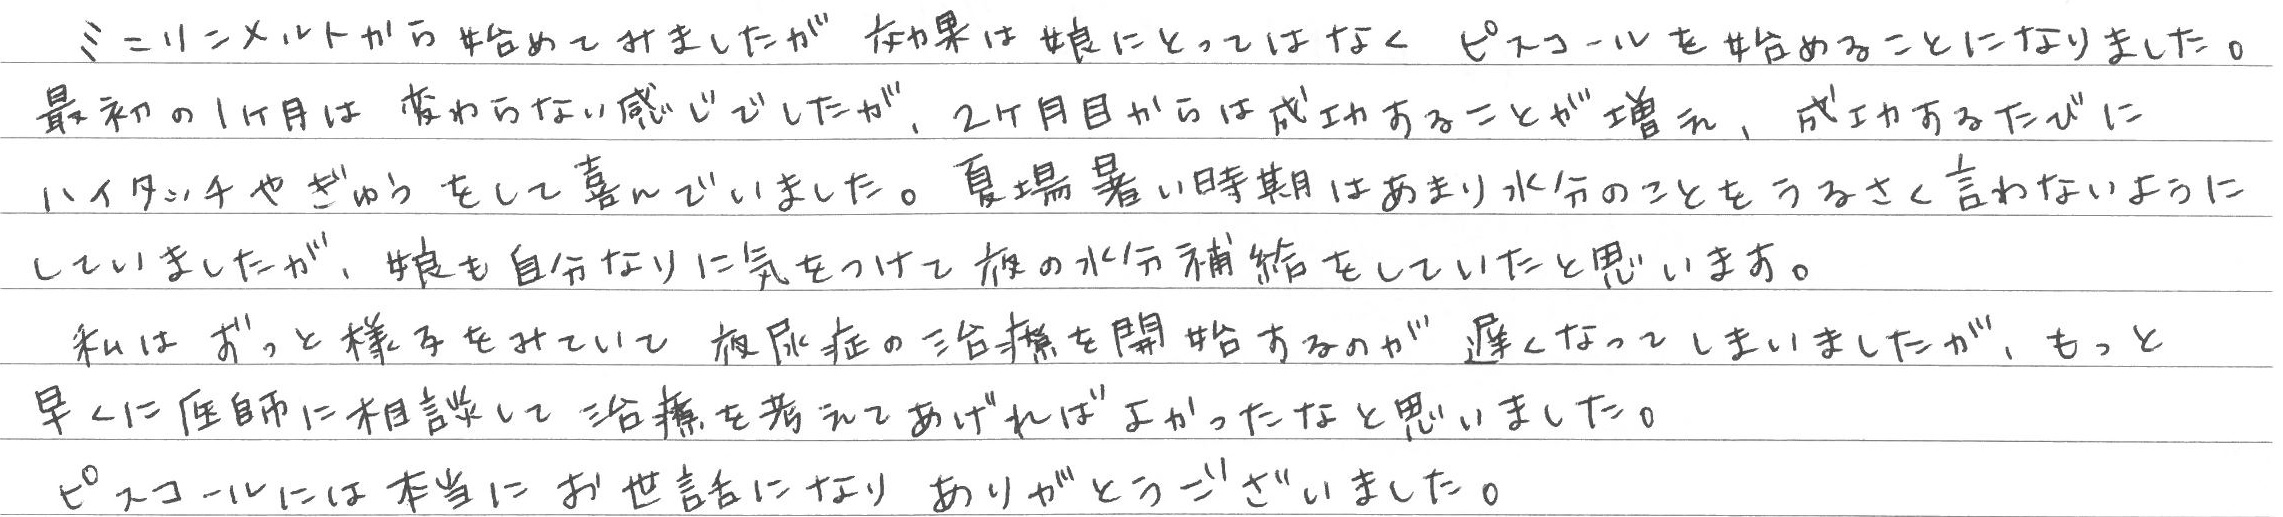 ミニリンメルトから始めてみましたが 効果は娘にとってはなく ピスコールを始めることになりました。
最初の1ケ月は 変わらない感じでしたが、2ケ月目からは成功することが増え、成功するたびに
ハイタッチやぎゅうをして喜んでいました。夏場暑い時期はあまり水分のことをうるさく言わないように
していましたが、娘も自分なりに気をつけて夜の水分補給をしていたと思います。
私は ずっと様子をみていて 夜尿症の治療を開始するのが 遅くなってしまいましたが、もっと
早くに医師に相談して 治療を考えてあげればよかったなと思いました。
ピスコールには本当に お世話になり ありがとうございました。